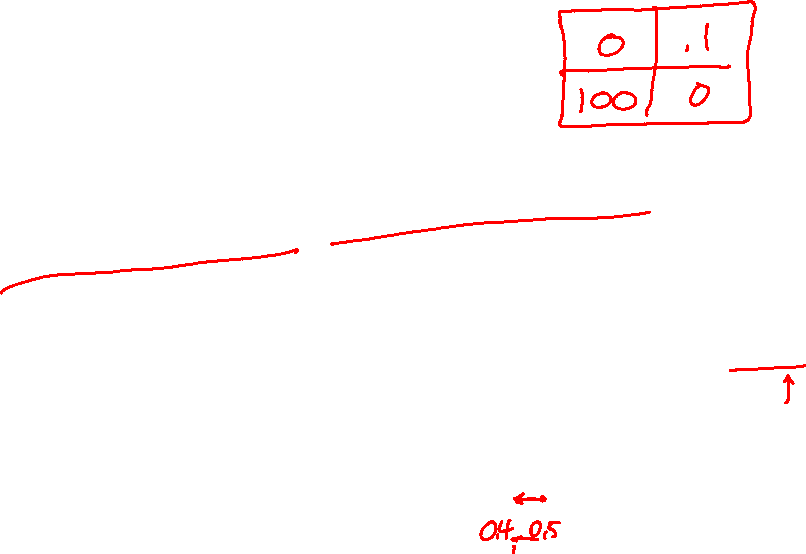 0 .1
100 0
0.4 0.5